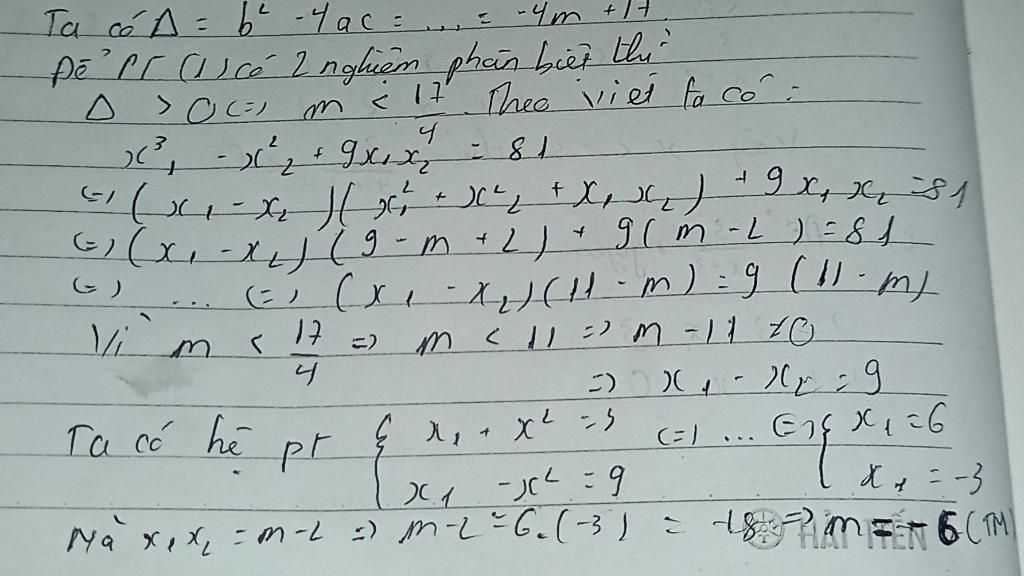 Ta có Δ = b² - 4ac = ... = -4m + 17.
Để Pt (1) có 2 nghiệm phân biệt thì
Δ > 0 <=> m < 17/4. Theo Viét ta có:
x³₁ - x²₂ + 9x₁x₂ = 81
<=> (x₁ - x₂)(x₁² + x²₂ + x₁x₂) + 9x₁x₂ = 81
<=> (x₁ - x₂)(9 - m + 2) + 9(m - 2) = 81
<=> ... <=> (x₁ - x₂)(11 - m) = 9(11 - m)
Vì m < 17/4 => m < 11 => m - 11 ≠ 0
=> x₁ - x₂ = 9
Ta có hệ pt { x₁ + x² = 3 <=> ... <=> { x₁ = 6
x₁ - x² = 9 x₂ = -3
Mà x₁x₂ = m - 2 => m - 2 = 6.(-3) = -18 => m = - 6 (TM)
HẢI TIẾN